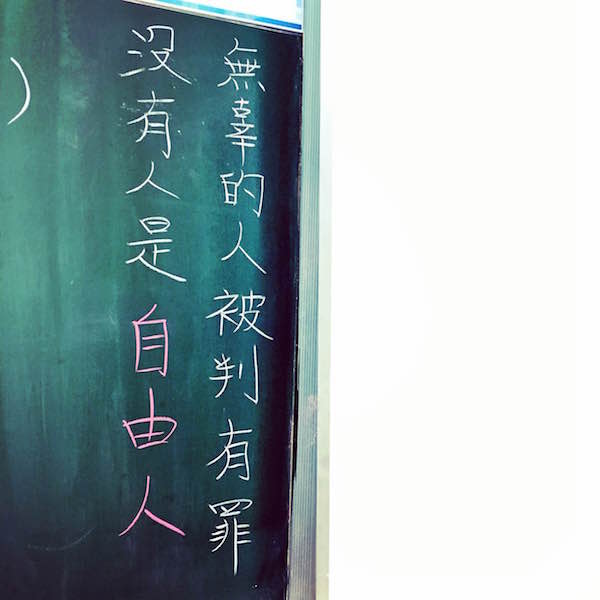 無辜的人被判有罪
沒有人是自由人